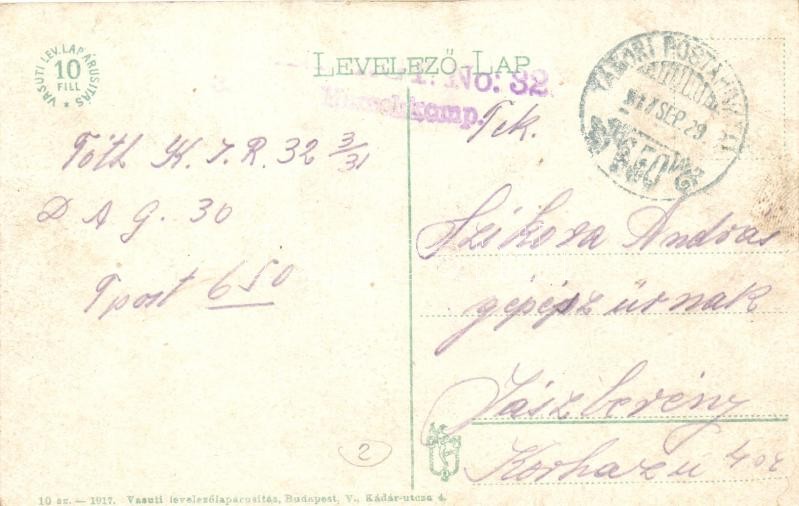 VASUTI LEV. LAP ÁRUSITÁS
10
FILL
LEVELEZŐ-LAP
No: 32
TÁBORI POSTAHIVATAL
917 SEP. 29
650
Tóth K. I. R. 32 3/31
D A G. 30
Tpost 650
Tek.
Szikora András
gépész úrnak
Jászberény
Korhaz u 4 sz
2
10 sz. — 1917. Vasuti levelezőlapárusitás, Budapest, V., Kádár-utcza 4.